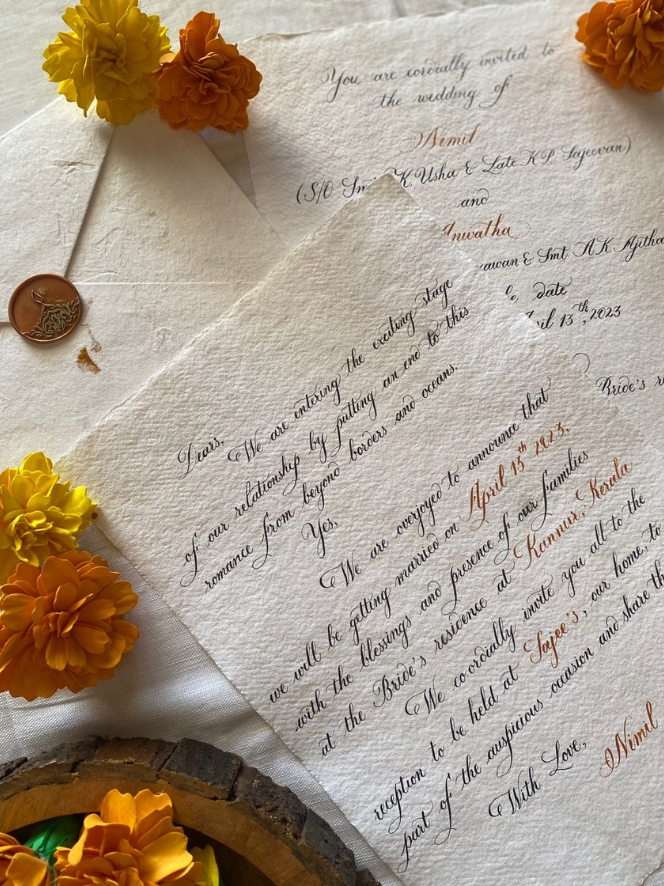 You are cordially invited to
the wedding of
Nimil
(S/O Smt K.Usha & Late K P Sajeevan)
and
Anwatha
& Smt A K Ajitha
date
April 15th, 2023
Bride's
Dears,
We are entering the exciting stage
of our relationship by putting an end to this
romance from beyond borders and oceans.
Yes,
We are overjoyed to announce that
we will be getting married on April 15th 2023,
with the blessings and presence of our families
at the Bride's residence at Kannur, Kerala
We cordially invite you all to the
reception to be held at Sajee's, our home, to
part of the auspicious occasion and share
With Love,
Nimil